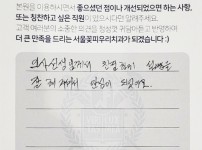 본원을 이용하시면서 좋으셨던 점이나 개선되었으면 하는 사항,
또는 칭찬하고 싶은 직원이 있으시다면 알려주세요.
고객 여러분의 소중한 의견을 정성껏 귀담아듣고 반영하여
더 큰 만족을 드리는 서울꽃피우리치과가 되겠습니다 :)
의사 선생님께서
잘 해 주셔서 안심이 되었어요.